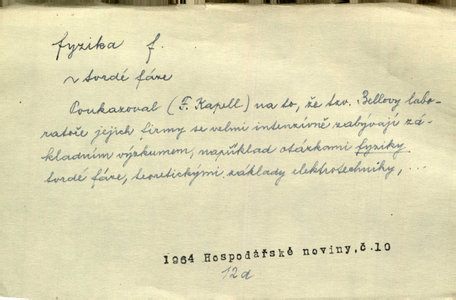 fyzika f.
~ tvrdé fáze
Poukazoval (F. Kapell) na to, že tzv. Bellovy labo-
ratoře jejich firmy se velmi intenzívně zabývají zá-
kladním výzkumem, například otázkami fyziky
tvrdé fáze, teoretickými základy elektrotechniky, ...
1964 Hospodářské noviny, č.10
12d